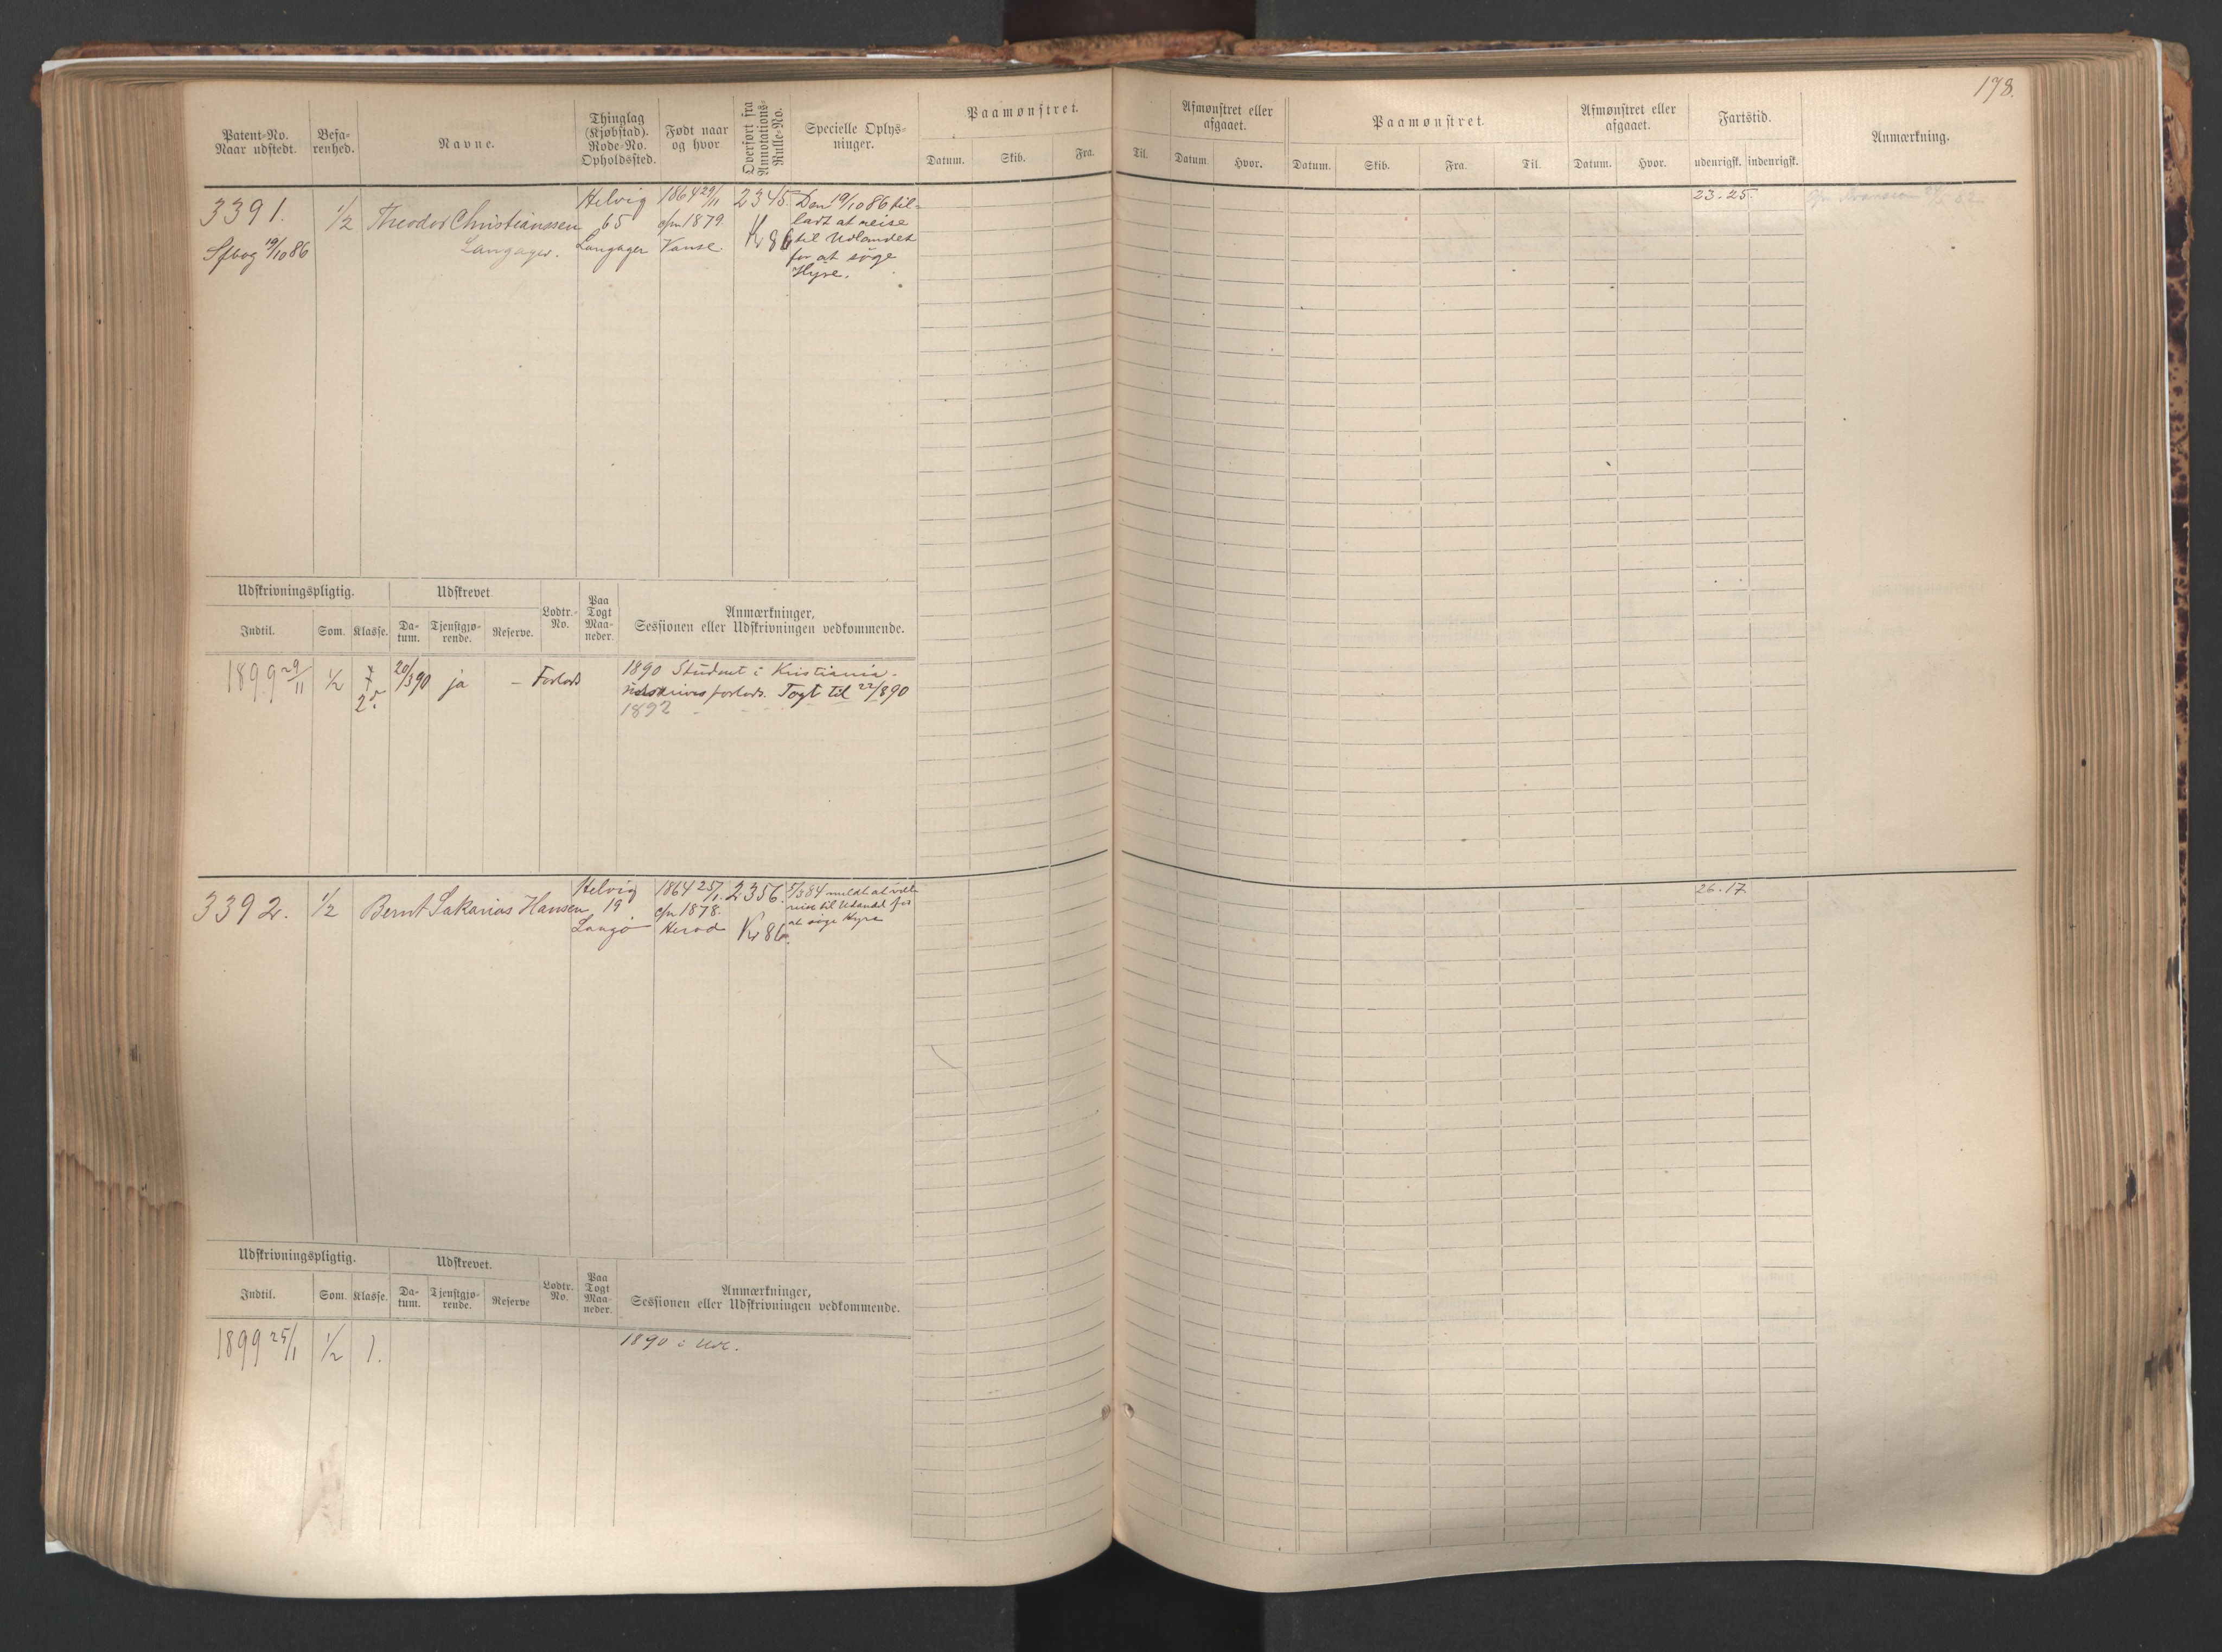 178.
Patent=No. Naar udstedt.
Befa=renhed.
Navne.
Thinglag (Kjøbstad). Rode=No. Opholdssted.
Født naar og hvor
Overført fra Annotations=Rulle=No.
Specielle Oplys=ninger.
Paamønstret.
Datum. Skib. Fra.
Til.
Afmønstret eller afgaaet.
Datum Hvor.
Paamønstret.
Datum. Skib. Fra. Til.
Afmønstret eller afgaaet.
Datum. Hvor.
Fartstid.
udenrigsk. indenrigsk.
Anmærkning.
3391.
Sfbog 19/10 86
1/2
Theodor Christianssen
Langager.
Helvig
65
Langager
1864 29/11
cfn 1879.
Vanse.
2345.
Kr 86
Den 19/10 86 til=
ladt at reise
til Udlandet
for at søge
Hyre.
23.25.
Udskrivningspligtig.
Indtil. Som. Klasse.
Udskrevet
Da=tum. Tjenstgjø=rende. Reserve.
Lodtr.=No.
Paa Togt Maa=neder.
Anmærkninger,
Sessionen eller Udskrivningen vedkommende.
1899 29/11
1/2
2.
20/3 90
ja
–
Forlods
1890 Student i Kristiania.
udskrives forlods. Togt til 22/8 90
1892
3392.
1/2
Bernt Sakarias Hansen
Helvig
19
Langø
1864 25/1.
cfn 1878.
Herad
2356.
Kr 86.
5/3 84 meldt at ville
reise til Udlandet for
at søge Hyre
26.17.
Udskrivningspligtig.
Indtil. Som. Klasse.
Udskrevet.
Da=tum. Tjenstgjø=rende. Reserve
Lodtr. No.
Paa Togt Maa=neder.
Anmærkninger,
Sessionen eller Udskrivningen vedkommende.
1899 25/1
1/2
1.
1890 i Udl.